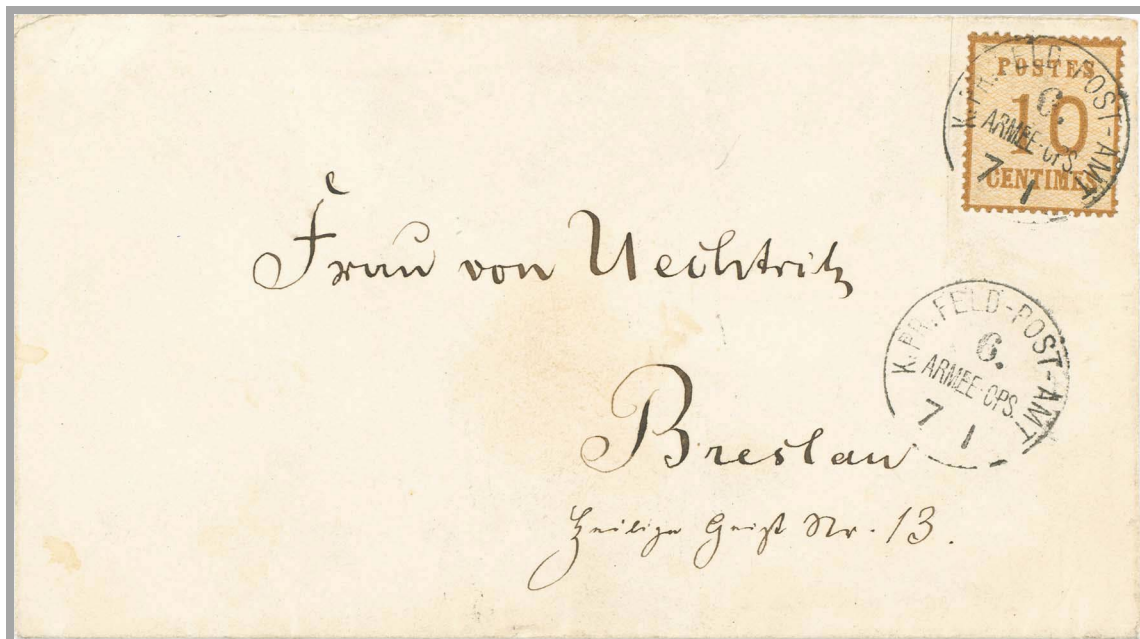 POSTES
10
CENTIMES
K.PR.FELD-POST-AMT
6.
ARMEE-CPS.
7 1
Frau von Uechtritz
K.PR.FELD-POST-AMT
6.
ARMEE-CPS.
7 1
Breslau
Heilige Geist Str. 13.